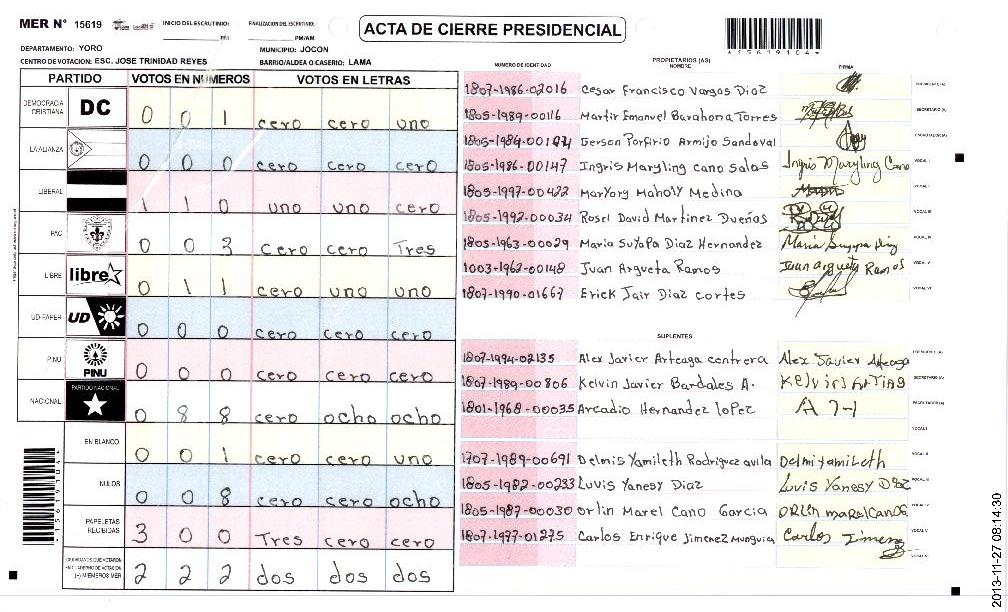 MER N° 15619
INICIO DEL ESCRUTINIO:
PM
FINALIZACION DEL ESCRUTINIO:
PM/AM
ACTA DE CIERRE PRESIDENCIAL
*15619104*
DEPARTAMENTO: YORO
MUNICIPIO: JOCON
CENTRO DE VOTACION: ESC. JOSE TRINIDAD REYES
BARRIO/ALDEA O CASERIO: LAMA
PARTIDO VOTOS EN NUMEROS VOTOS EN LETRAS
DEMOCRACIA CRISTIANA DC 0 0 1 cero cero uno
LA ALIANZA 0 0 0 cero cero cero
LIBERAL 1 1 0 uno uno cero
PAC 0 0 3 cero cero Tres
LIBRE libre 0 1 1 cero uno uno
UD-FAPER UD 0 0 0 cero cero cero
PINU PINU 0 0 0 cero cero cero
NACIONAL PARTIDO NACIONAL 0 8 8 cero ocho ocho
EN BLANCO 0 0 1 cero cero uno
NULOS 0 0 8 cero cero ocho
PAPELETAS RECIBIDAS 3 0 0 Tres cero cero
CIUDADANOS QUE VOTARON EN CUADERNO DE VOTACION (+) MIEMBROS MER 2 2 2 dos dos dos
*15619104*
NUMERO DE IDENTIDAD
PROPIETARIOS (AS)
NOMBRE
FIRMA
1807-1986-02016 Cesar Francisco Vargas Diaz PRESIDENTE(A)
1805-1989-00116 Martir Emanuel Barahona Torres SECRETARIO(A)
Gerson Porfirio Armijo Sandoval ESCRUTADOR(A)
1805-1986-00147 Ingris Maryling cano Salas Ingris Maryling Cano VOCAL I
1805-1997-00422 Maryory Maholy Medina VOCAL II
1805-1992-00034 Rosel David Martinez Dueñas VOCAL III
1805-1963-00029 Maria Suyapa Diaz Hernandez Maria Suyapa Diaz VOCAL IV
1003-1962-00148 Juan Argueta Ramos Juan argueta Ramos VOCAL V
1807-1990-01667 Erick Jair Diaz cortes VOCAL VI
SUPLENTES
1807-1994-02135 Alex Javier Arteaga contrera Alex Javier Arteaga PRESIDENTE(A)
1807-1989-00806 Kelvin Javier Bardales A. SECRETARIO(A)
1801-1968-00035 Arcadio Hernandez lopez ESCRUTADOR(A)
VOCAL I
1707-1989-00691 Delmis Yamileth Rodriguez avila Delmi yamileth VOCAL II
1805-1982-00233 Luvis Yanesy Diaz Luvis Yanesy Diaz VOCAL III
1805-1987-00030 Orlin Marel Cano Garcia Orlin marel canoG VOCAL IV
1807-1977-01275 Carlos Enrique Jimenez Munguia Carlos Jimenez VOCAL V
VOCAL VI
2013-11-27 08:14:30